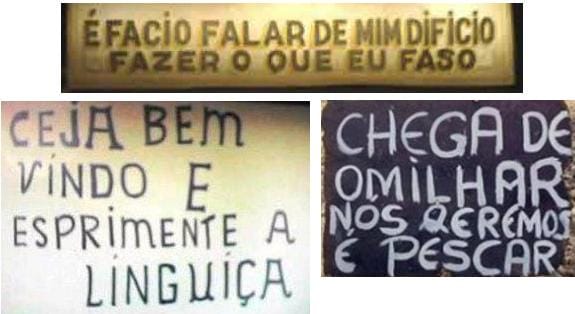 É FACIO FALAR DE MIM DIFICIO
FAZER O QUE EU FASO
CEJA BEM
VINDO E
ESPRIMENTE A
LINGUIÇA
CHEGA DE
OMILHAR
NÓS QEREMOS
É PESCAR